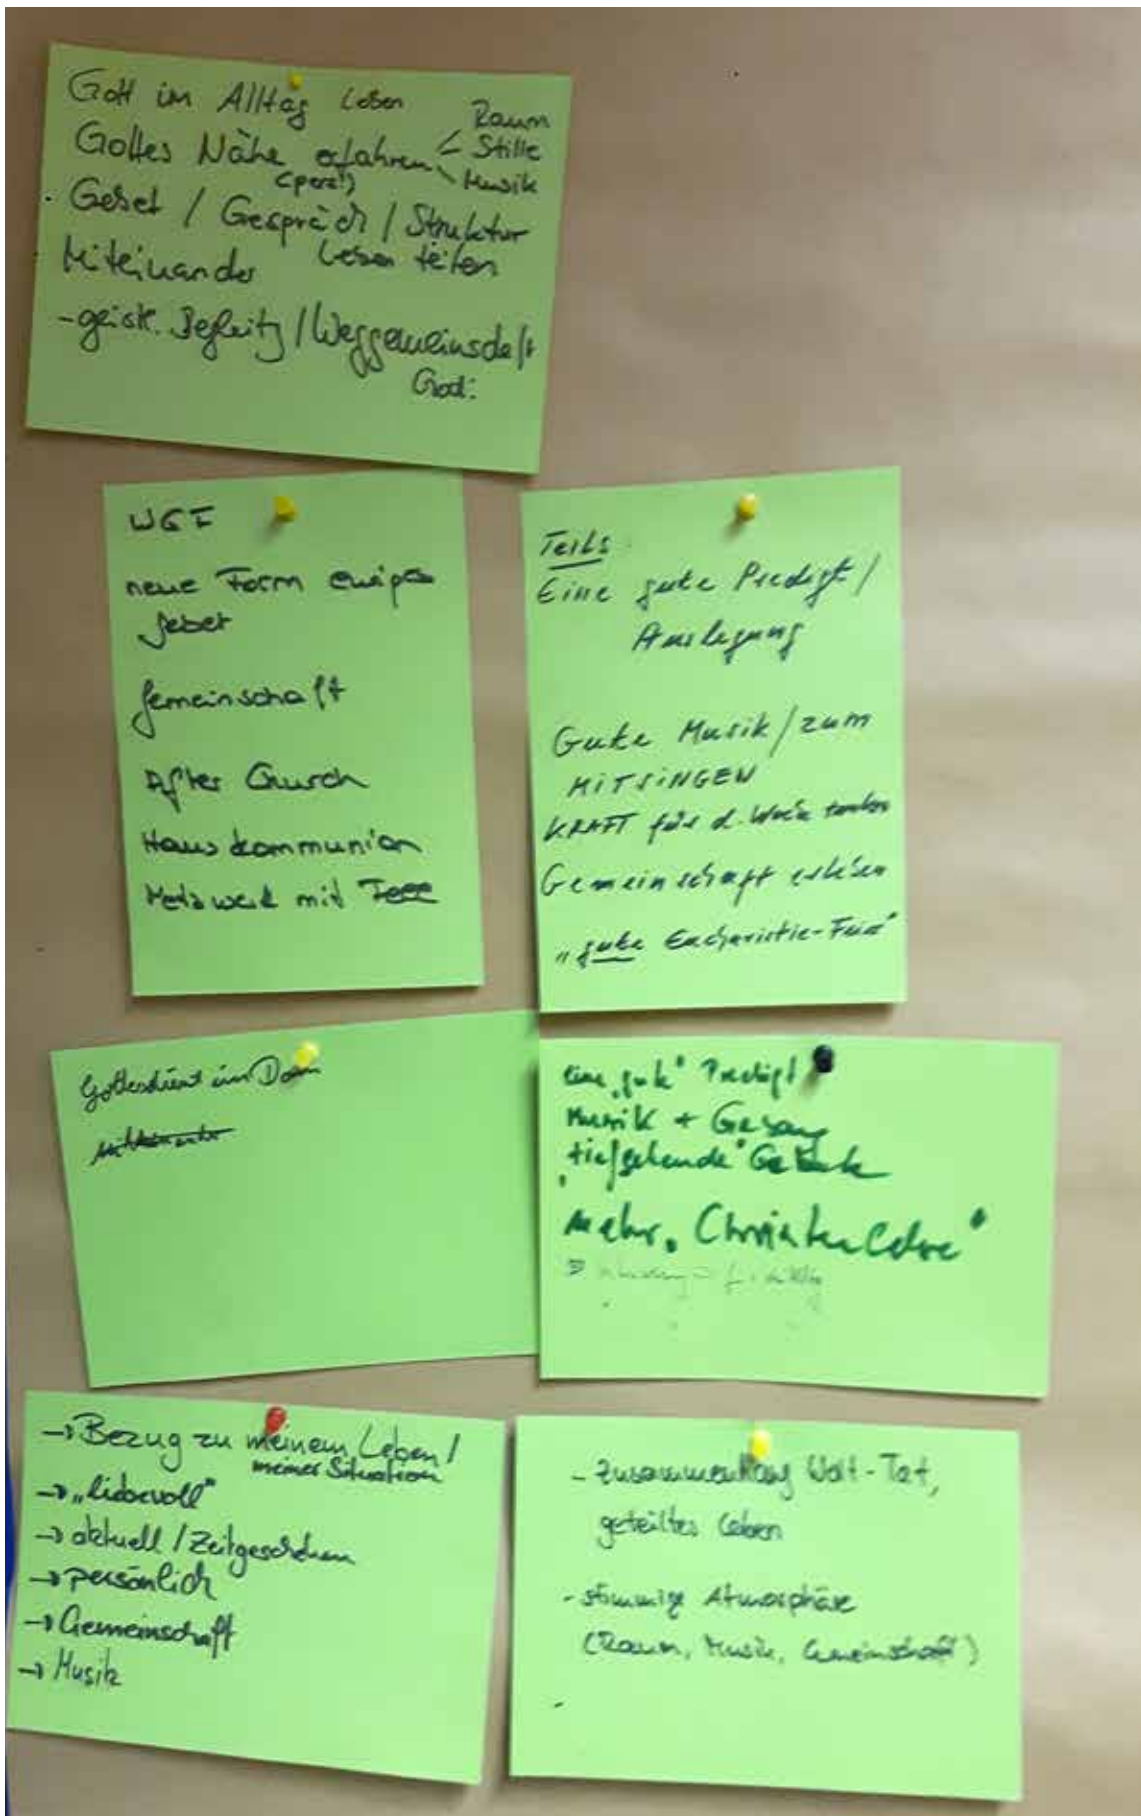 Gott im Alltag leben
Raum
Gottes Nähe erfahren < Stille
(pers!) Musik
Gebet / Gespräch / Struktur
Miteinander Leben teilen
- geistl. Begleitg / Weggemeinschaft
WGF
neue Form ewiges
Gebet
Gemeinschaft
After Church
Hauskommunion
mit
Teils
Eine gute Predigt /
Auslegung
Gute Musik / zum
MITSINGEN
KRAFT für d. Woche tanken
Gemeinschaft erleben
"gute Eucharistie-Feier"
Gottesdienst im Dom
eine "gute" Predigt
Musik + Gesang
"tiefgehende" Gebete
mehr "Christenlehre"
→ Bezug zu meinem Leben /
meiner Situation
→ "liebevoll"
→ aktuell / Zeitgeschehen
→ persönlich
→ Gemeinschaft
→ Musik
- Zusammenhang Wort-Tat,
geteiltes Leben
- stimmige Atmosphäre
(Raum, Musik, Gemeinschaft)
-